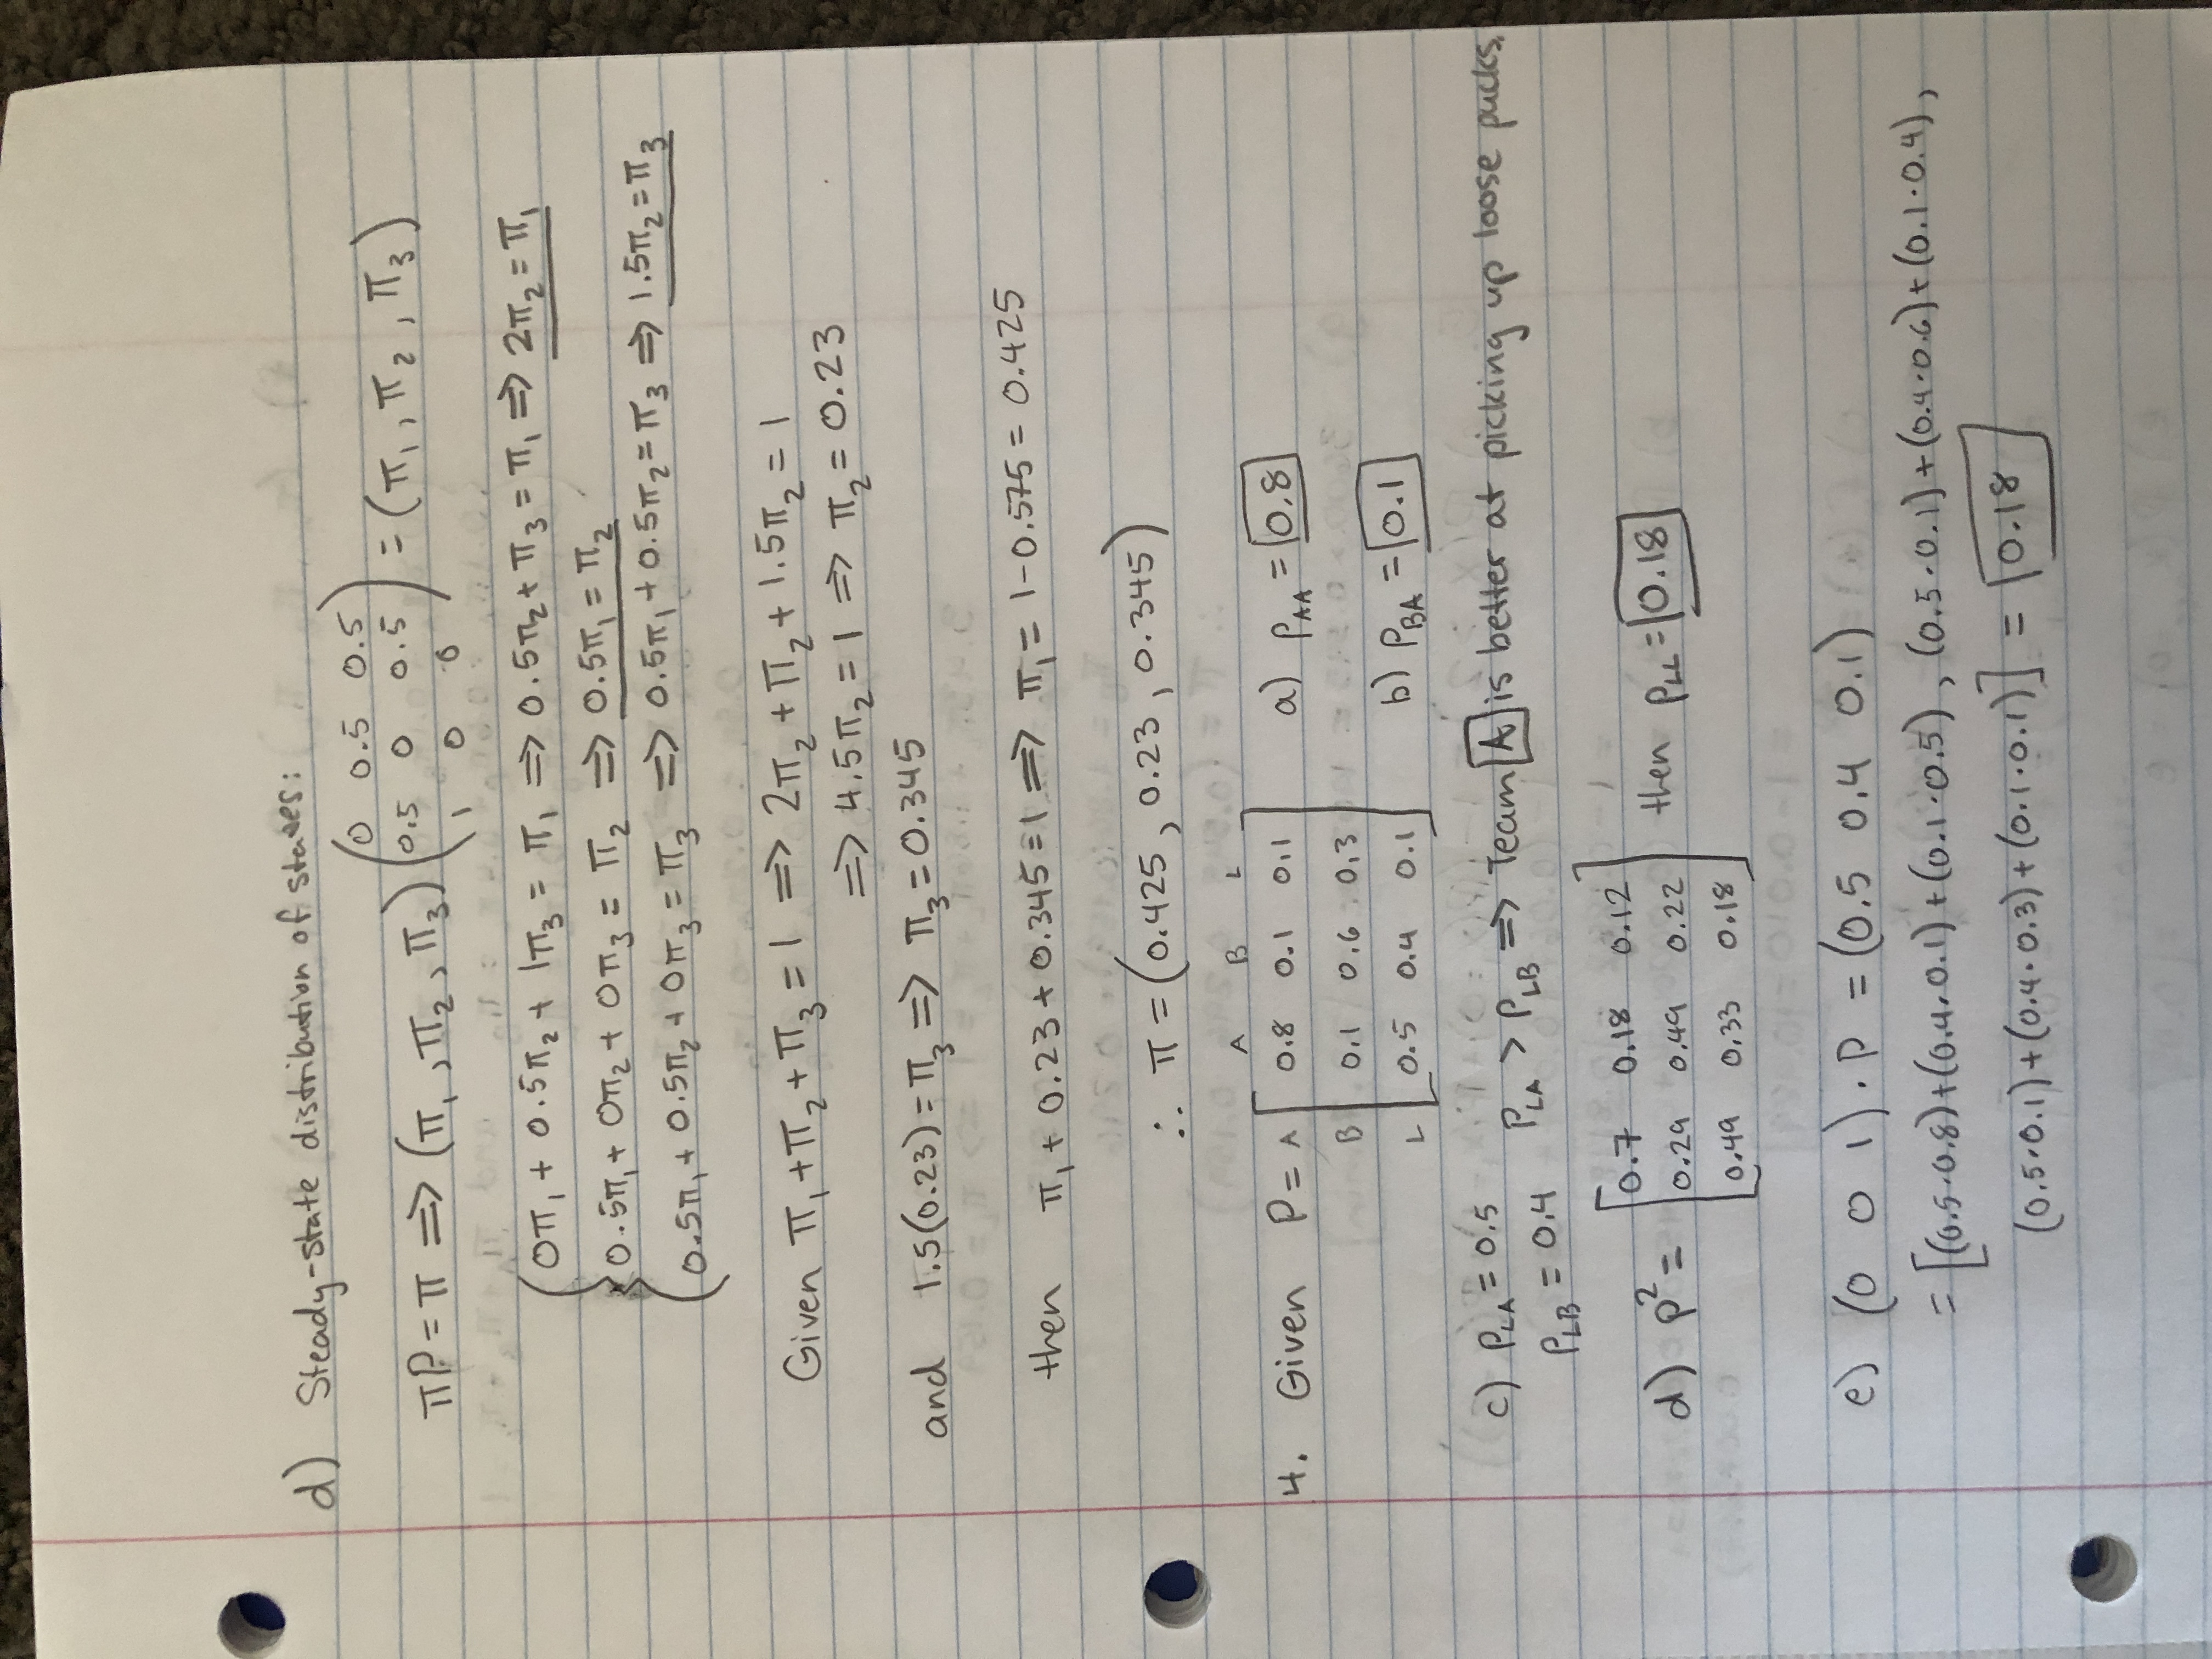 d) Steady-state distribution of states:
πP = π ⟹ (π₁, π₂, π₃) (0 0.5 0.5
0.5 0 0.5
1 0 0) = (π₁, π₂, π₃)
{ 0π₁ + 0.5π₂ + 1π₃ = π₁ ⟹ 0.5π₂ + π₃ = π₁ ⟹ 2π₂ = π₁
0.5π₁ + 0π₂ + 0π₃ = π₂ ⟹ 0.5π₁ = π₂
0.5π₁ + 0.5π₂ + 0π₃ = π₃ ⟹ 0.5π₁ + 0.5π₂ = π₃ ⟹ 1.5π₂ = π₃
Given π₁ + π₂ + π₃ = 1 ⟹ 2π₂ + π₂ + 1.5π₂ = 1
⟹ 4.5π₂ = 1 ⟹ π₂ = 0.23
and 1.5(0.23) = π₃ ⟹ π₃ = 0.345
then π₁ + 0.23 + 0.345 = 1 ⟹ π₁ = 1 - 0.575 = 0.425
∴ π = (0.425, 0.23, 0.345)
A B L
4. Given P = A [0.8 0.1 0.1
B 0.1 0.6 0.3
L 0.5 0.4 0.1]
a) P_AA = 0.8
b) P_BA = 0.1
c) P_LA = 0.5
P_LB = 0.4
P_LA > P_LB ⟹ Team A is better at picking up loose pucks.
d) P² = [0.7 0.18 0.12
0.29 0.49 0.22
0.49 0.33 0.18] then P_LL = 0.18
e) (0 0 1) · P = (0.5 0.4 0.1)
= [(0.5·0.8)+(0.4·0.1)+(0.1·0.5), (0.5·0.1)+(0.4·0.6)+(0.1·0.4),
(0.5·0.1)+(0.4·0.3)+(0.1·0.1)] = 0.18